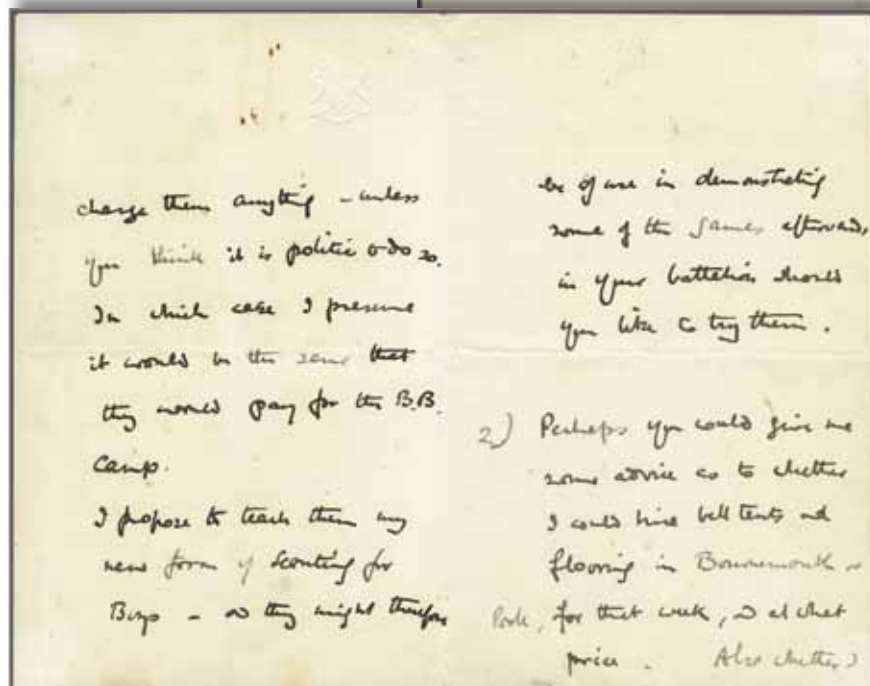 charge them anything – unless
you think it is politic to do so.
In which case I presume
it would be the same that
they would pay for the B.B.
Camp.
I propose to teach them my
new form of Scouting for
Boys – so they might therefore
be of use in demonstrating
some of the games afterwards
in your battalion should
you like to try them.
2) Perhaps you could give me
some advice as to whether
I could hire bell tents and
flooring in Bournemouth or
Poole, for that week, & at what
price. Also whether I